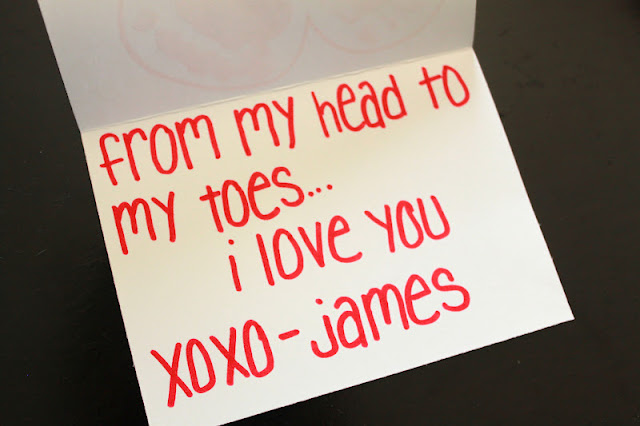 from my head to
my toes...
i love you
xoxo-james